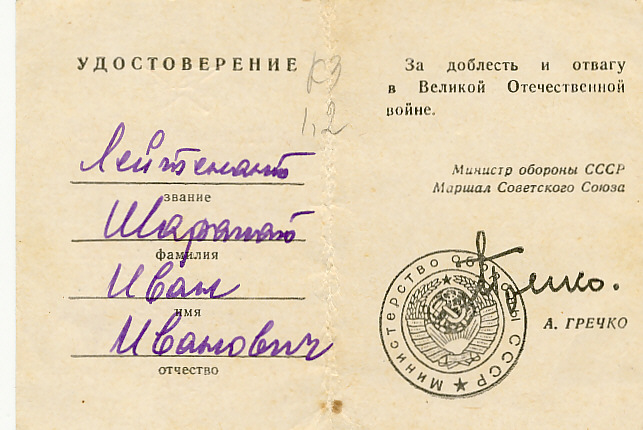 УДОСТОВЕРЕНИЕ
Лейтенант
звание
фамилия
Иван
имя
Иванович
отчество
За доблесть и отвагу
в Великой Отечественной
войне.
Министр обороны СССР
Маршал Советского Союза
МИНИСТЕРСТВО ОБОРОНЫ СССР
А. ГРЕЧКО